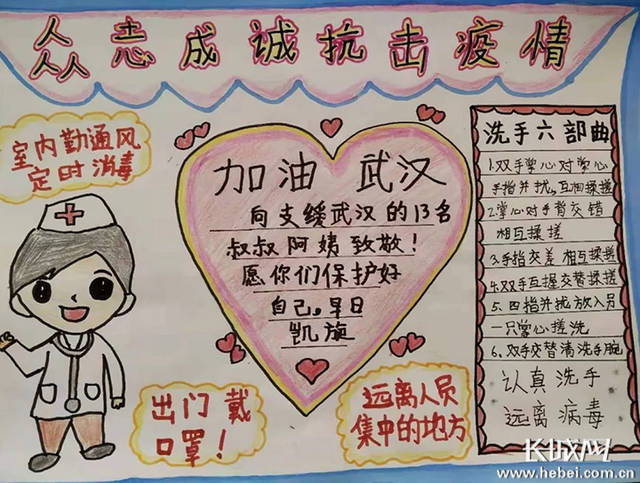 众志成诚抗击疫情
室内勤通风
定时消毒
加油 武汉
向支缓武汉的13名
叔叔阿姨致敬!
愿你们保护好
自己。早日
凯旋
出门戴
口罩!
远离人员
集中的地方
洗手六部曲
1.双手掌心对掌心
手指并拢,互相揉搓
2.掌心对手背交错
相互揉搓
3.手指交差相互揉搓
4.双手互握交替揉搓
5.四指并拢放入另
一只掌心搓洗
6.双手交替清洗手腕
认真洗手
远离病毒
长城网
www.hebei.com.cn